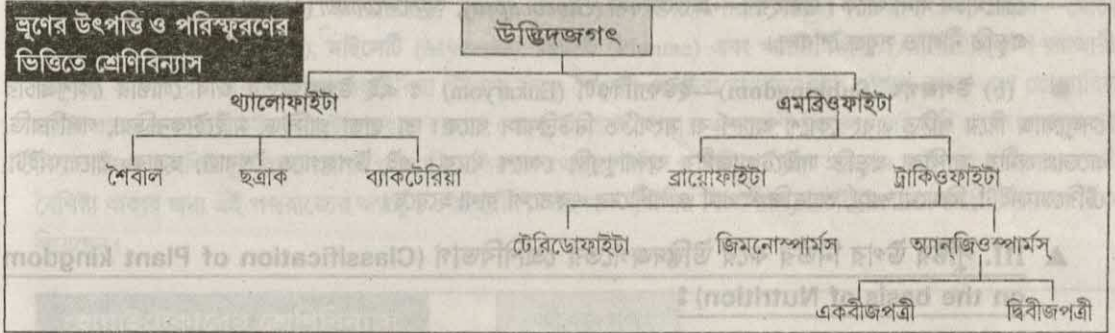 ভ্রূণের উৎপত্তি ও পরিস্ফুরণের
ভিত্তিতে শ্রেণিবিন্যাস
উদ্ভিদজগৎ
থ্যালোফাইটা এমব্রিওফাইটা
শৈবাল ছত্রাক ব্যাকটেরিয়া ব্রায়োফাইটা ট্রাকিওফাইটা
টেরিডোফাইটা জিমনোস্পার্মস্ অ্যানজিওস্পার্মস্
একবীজপত্রী দ্বিবীজপত্রী